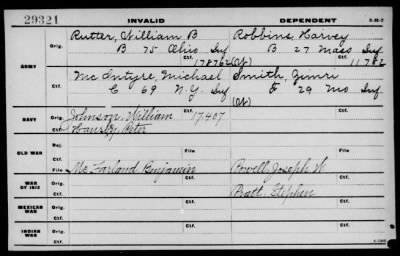 29321 INVALID DEPENDENT
Orig. Rutter, William B Robbins, Harvey
B 75 Ohio Inf B 27 Mass Inf
Ctf. 178762 (Of) 11782
ARMY
Orig. McIntyre, Michael Smith, Jimri
C 69 N.Y. Inf F 29 Mo Inf
Ctf. (Of)
NAVY Orig. Johnson, William 17,407
Ctf. Peter
OLD WAR Rej. File
Ctf.
WAR OF 1812 File McFarland Benjamin Powell, Joseph
Ctf. Pratt Stephen
MEXICAN WAR Orig.
Ctf.
INDIAN WAR Orig.
Ctf.